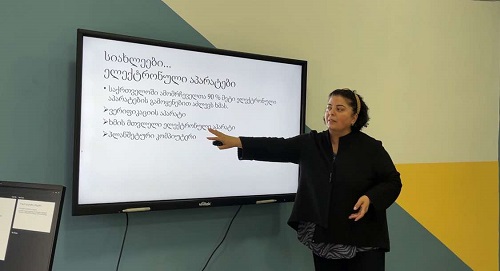 სიახლეები...
ელექტრონული აპარატები
• საქართველოში ამომრჩეველთა 90 % მეტი ელექტრონული
აპარატების გამოყენებით აძლევს ხმას.
➢ ვერიფიკაციის აპარატი
➢ ხმის მთვლელი ელექტრონული აპარატი
➢ პლანშეტური კომპიუტერი